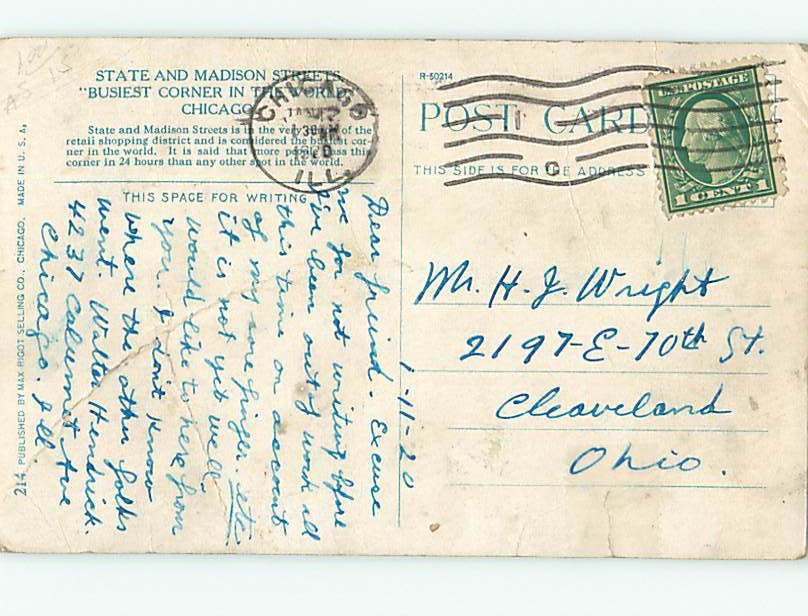 STATE AND MADISON STREETS,
"BUSIEST CORNER IN THE WORLD,"
CHICAGO
State and Madison Streets is in the very heart of the
retail shopping district and is considered the busiest cor-
ner in the world. It is said that more people pass this
corner in 24 hours than any other spot in the world.
THIS SPACE FOR WRITING
1-11-20
Dear friend. Excuse
me for not writing before
I've been out of work all
this time on account
of my sore finger. etc.
it is not yet well,
would like to here from
you. I dont know
where the other folks
went. Walter Hendrick.
4237 Calumet Ave
Chicago. Ill.
214 PUBLISHED BY MAX RIGOT SELLING CO., CHICAGO. MADE IN U. S. A.
R-50214
POST CARD
THIS SIDE IS FOR THE ADDRESS
CHICAGO
ILL.
U.S. POSTAGE
1 CENT 1
Mr. H. J. Wright
2197-E-70th St.
Cleaveland
Ohio.